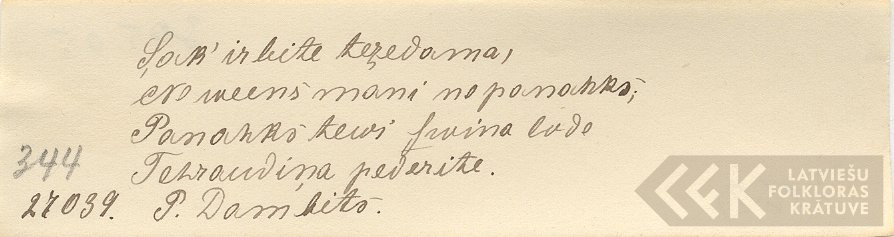 Sak' irbite tezedama,
Ne weens mani nopanahks;
Panahks tewi swina lode
Tehraudiņa pederite.
344
27039. P. Dambits.
LATVIEŠU
FOLKLORAS
KRĀTUVE